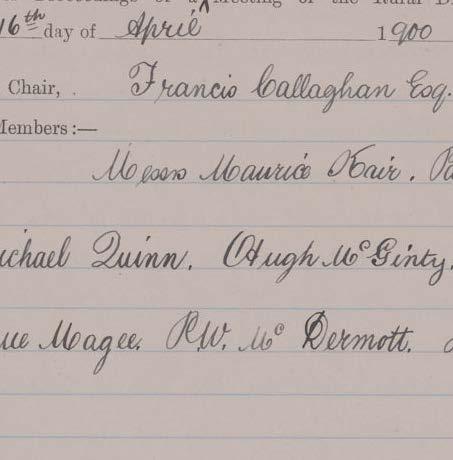 Proceedings of a Meeting of the Rural Di
16th day of April 1900
Chair, . Francis Callaghan Esq.
Members:—
Messrs Maurice Kair. Pa
ichael Quinn. Hugh McGinty.
Magee. P.W. Mc Dermott.